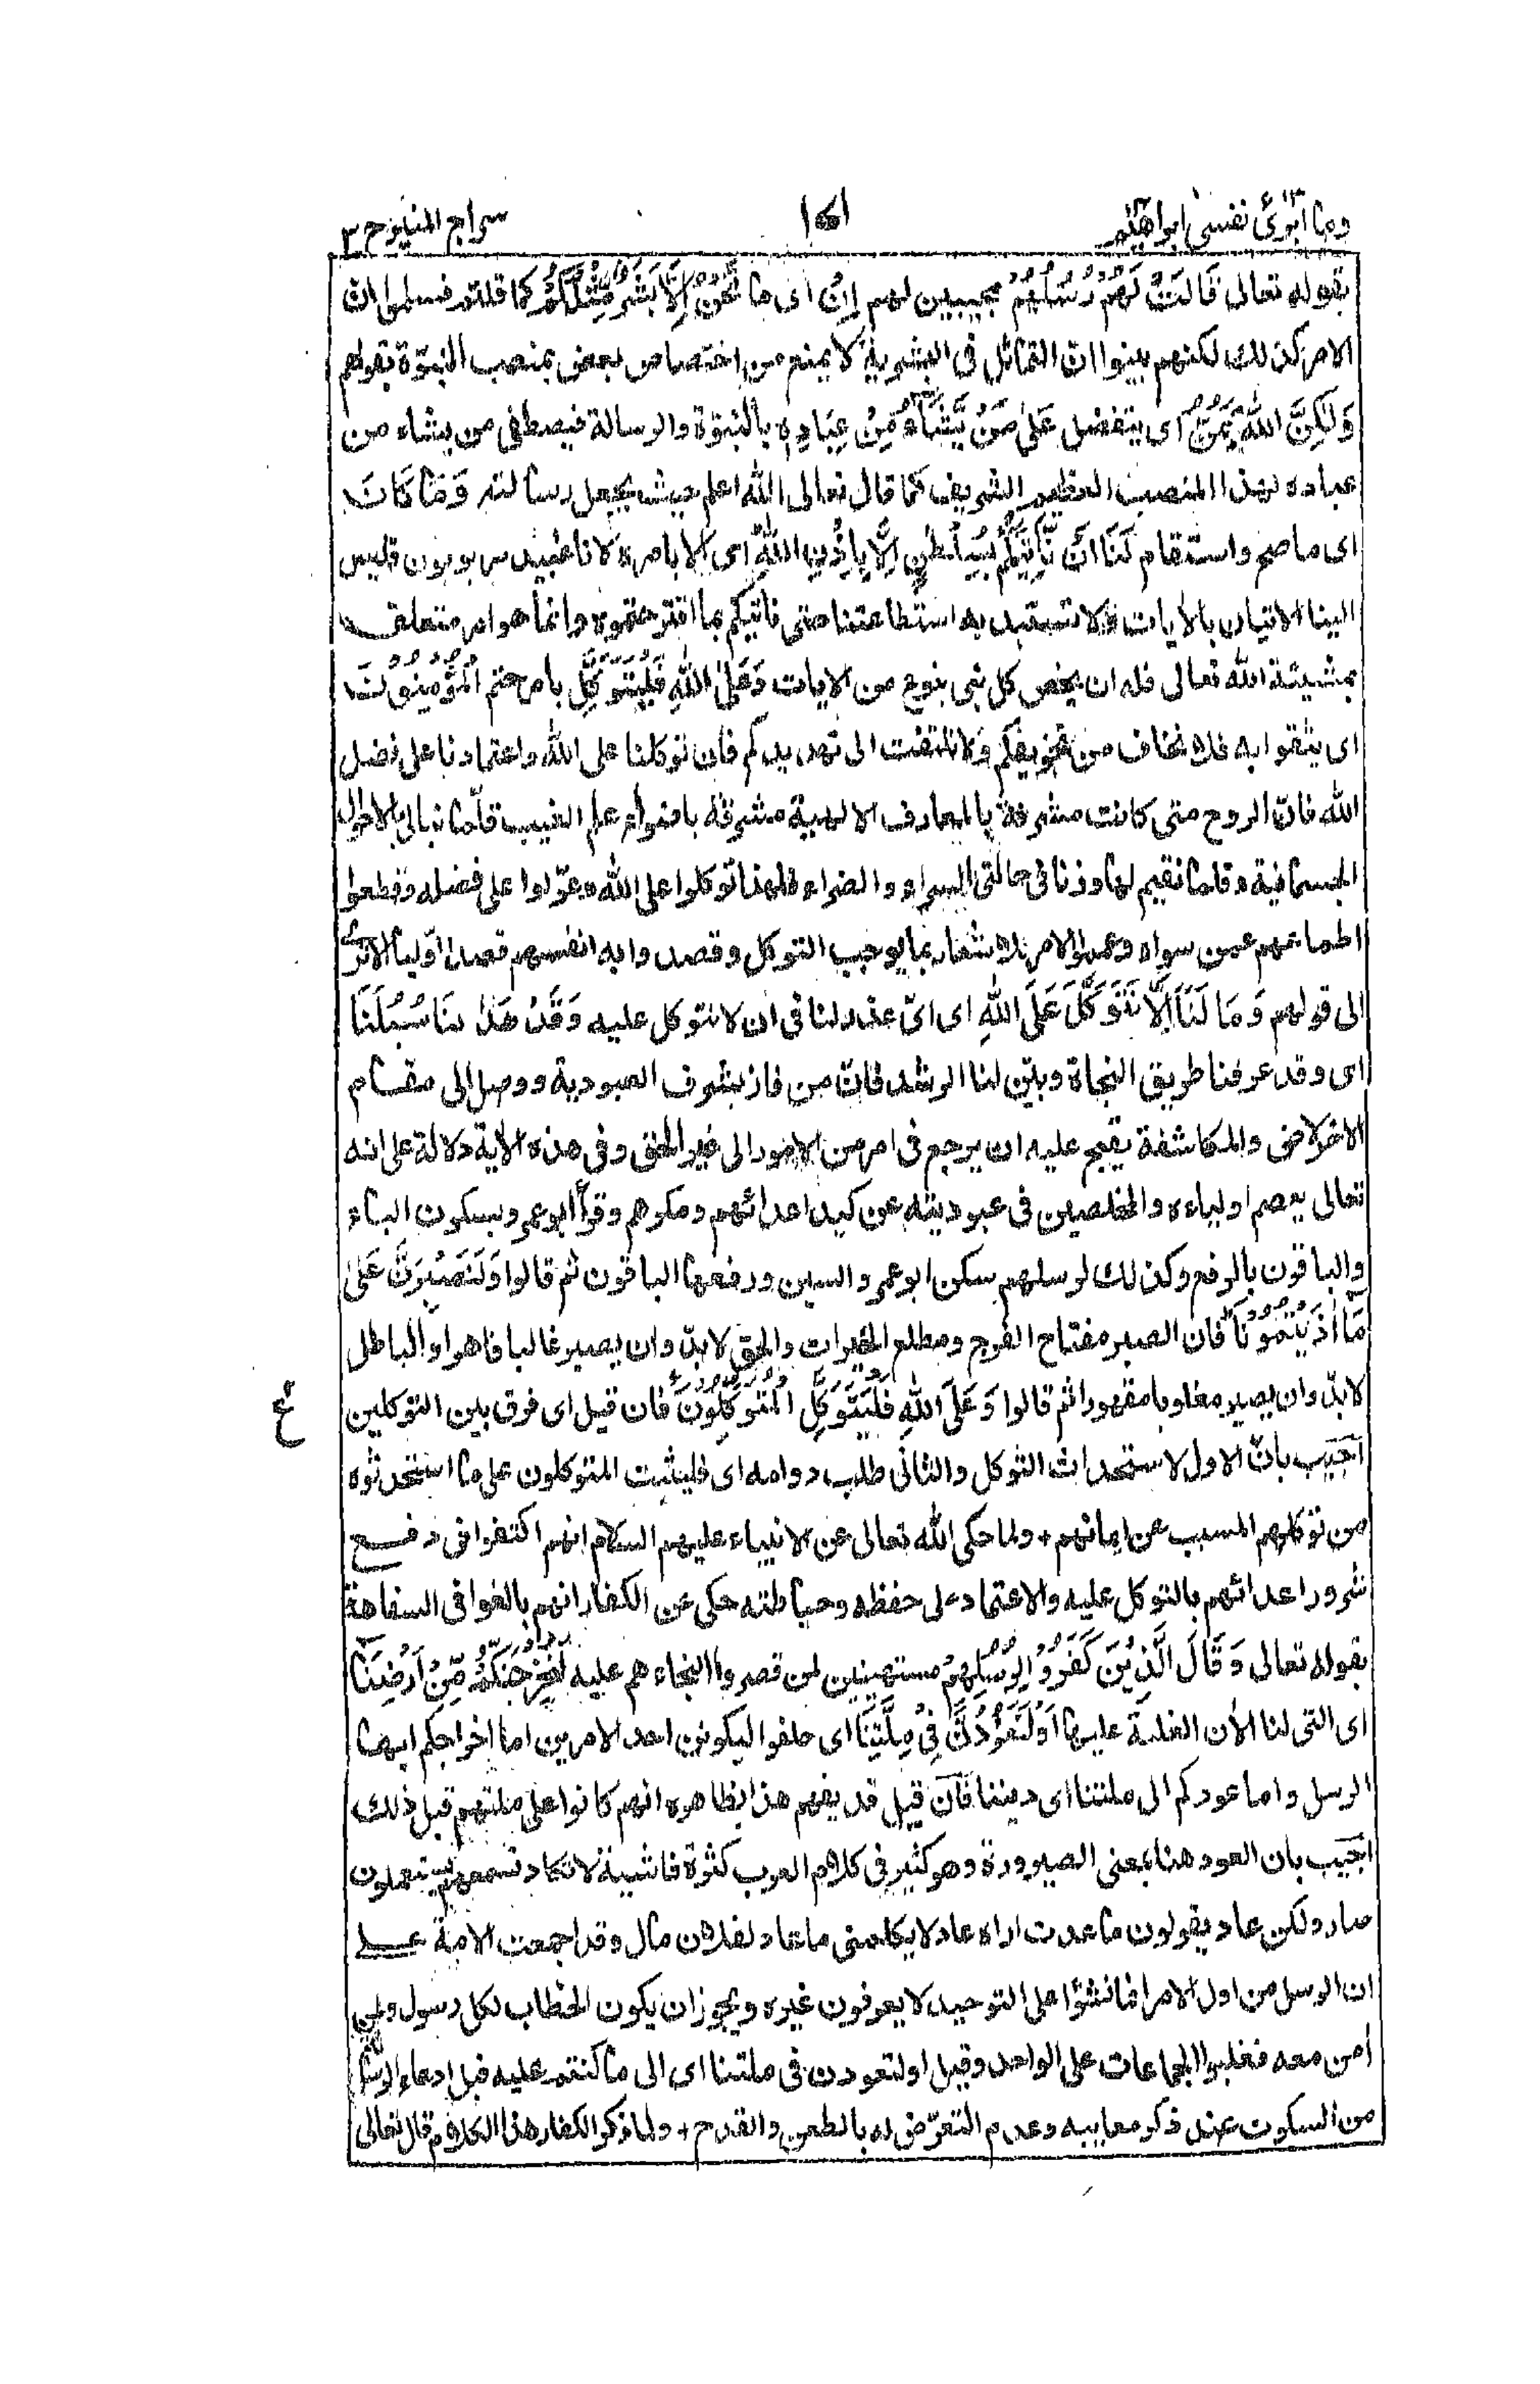 وما ابرئ نفسى ابراهيم ١٧١ سراج المنير ج ٢
بقوله تعالى قَالَتْ لَهُمْ رُسُلُهُمْ مجيبين لهم اِنْ اى ما نَّحْنُ اِلَّا بَشَرٌ مِّثْلُكُمْ كما قلتم فسلموا ان
الامر كذلك لكنهم بينوا ان التماثل فى البشرية لا يمنع من اختصاص بعض بمنصب النبوّة بقولهم
وَلٰكِنَّ اللّٰهَ يَمُنُّ اى يتفضل عَلٰى مَنْ يَّشَآءُ مِنْ عِبَادِهٖ بالنبوّة والرسالة فيصطفى من يشاء من
عباده لهذا المنصب العظيم الشريف كما قال تعالى الله اعلم حيث يجعل رسالته وَمَا كَانَ
اى ما صح واستقام لَنَا اَنْ نَّاْتِيَكُمْ بِسُلْطٰنٍ اِلَّا بِاِذْنِ اللّٰهِ اى الا بامره لانا عبيد مربوبون فليس
الينا الاتيان بالايات ولا تستبد به استطاعتنا حتى ناتيكم بما اقترحتموه وانما هو امر متعلق
بمشيئة الله تعالى فله ان يخص كل نبى بنوع من الايات وَعَلَى اللّٰهِ فَلْيَتَوَكَّلِ بامر حتم الْمُؤْمِنُوْنَ
اى يثقوا به فلا نخاف من تخويفكم ولا نلتفت الى تهديدكم فان توكلنا على الله واعتمادنا على فضل
الله فانّ الروح متى كانت مشرفة بالمعارف الالهية مشرقة باضواء علم الغيب قلّما تبالى بالاحوال
الجسمانية وقلما تقيم لها وزنا فى حالتى السراء والضراء فلهذا توكلوا على الله وعوّلوا على فضله وقطعوا
اطماعهم عمن سواه وعموا الامر للاشعار بما يوجب التوكل وقصدوا به انفسهم قصدا اوّليا الا ترى
الى قولهم وَمَا لَنَا اَلَّا نَتَوَكَّلَ عَلَى اللّٰهِ اى اىّ عذر لنا فى ان لا نتوكل عليه وَقَدْ هَدٰىنَا سُبُلَنَا
اى وقد عرفنا طريق النجاة وبيّن لنا الرشد فانّ من فاز بشرف العبودية ووصل الى مقام
الاخلاص والمكاشفة يقبح عليه ان يرجع فى امر من الامور الى غير الحق وفى هذه الاية دلالة على انه
تعالى يعصم اولياءه والمخلصين فى عبوديته عن كيد اعدائهم ومكرهم وقرأ ابو عمرو بسكون الباء
والباقون بالرفع وكذلك لرسلهم سكن ابو عمرو السين ورفعها الباقون ثم قالوا وَلَنَصْبِرَنَّ عَلٰى
مَآ اٰذَيْتُمُوْنَا فان الصبر مفتاح الفرج ومطلع الخيرات والحق لا بدّ وان يصير غالبا قاهرا والباطل
لا بدّ وان يصير مغلوبا مقهورا ثم قالوا وَعَلَى اللّٰهِ فَلْيَتَوَكَّلِ الْمُتَوَكِّلُوْنَ فان قيل اى فرق بين التوكلين
ع
اجيب بانّ الاول لاستحداث التوكل والثانى طلب دوامه اى فليثبت المتوكلون على ما استحدثوه
من توكلهم المسبب عن ايمانهم + ولما حكى الله تعالى عن الانبياء عليهم السلام انهم اكتفوا فى دفع
شرور اعدائهم بالتوكل عليه والاعتماد على حفظه وحياطته حكى عن الكفار انهم بالغوا فى السفاهة
بقوله تعالى وَقَالَ الَّذِيْنَ كَفَرُوْا لِرُسُلِهِمْ مستهينين لمن قصروا التجاءهم عليه لَنُخْرِجَنَّكُمْ مِّنْ اَرْضِنَآ
اى التى لنا الأن الغلبة عليها اَوْ لَتَعُوْدُنَّ فِىْ مِلَّتِنَا اى حلفوا ليكونن احد الامرين اما اخراجكم ايها
الرسل واما عودكم الى ملتنا اى ديننا فان قيل قد يفهم هذا بظاهره انهم كانوا على ملتهم قبل ذلك
اجيب بان العود هنا بمعنى الصيرورة وهو كثير فى كلام العرب كثرة فاشية لا تكاد تسمعهم يستعملون
صار ولكن عاد يقولون ما عدت اراه عاد لا يكلمنى ما عاد لفلان مال وقد اجمعت الامة على
ان الرسل من اول الامر انما نشؤا على التوحيد لا يعرفون غيره ويجوز ان يكون الخطاب لكل رسول ولمن
أمن معه فغلبوا الجماعات على الواحد وقيل او لتعودن فى ملتنا اى الى ما كنتم عليه قبل ادعاء الرسالة
من السكوت عند ذكر معايبه وعدم التعرّض له بالطعن والقدح + ولما ذكر الكفار هذا الكلام قال تعالى